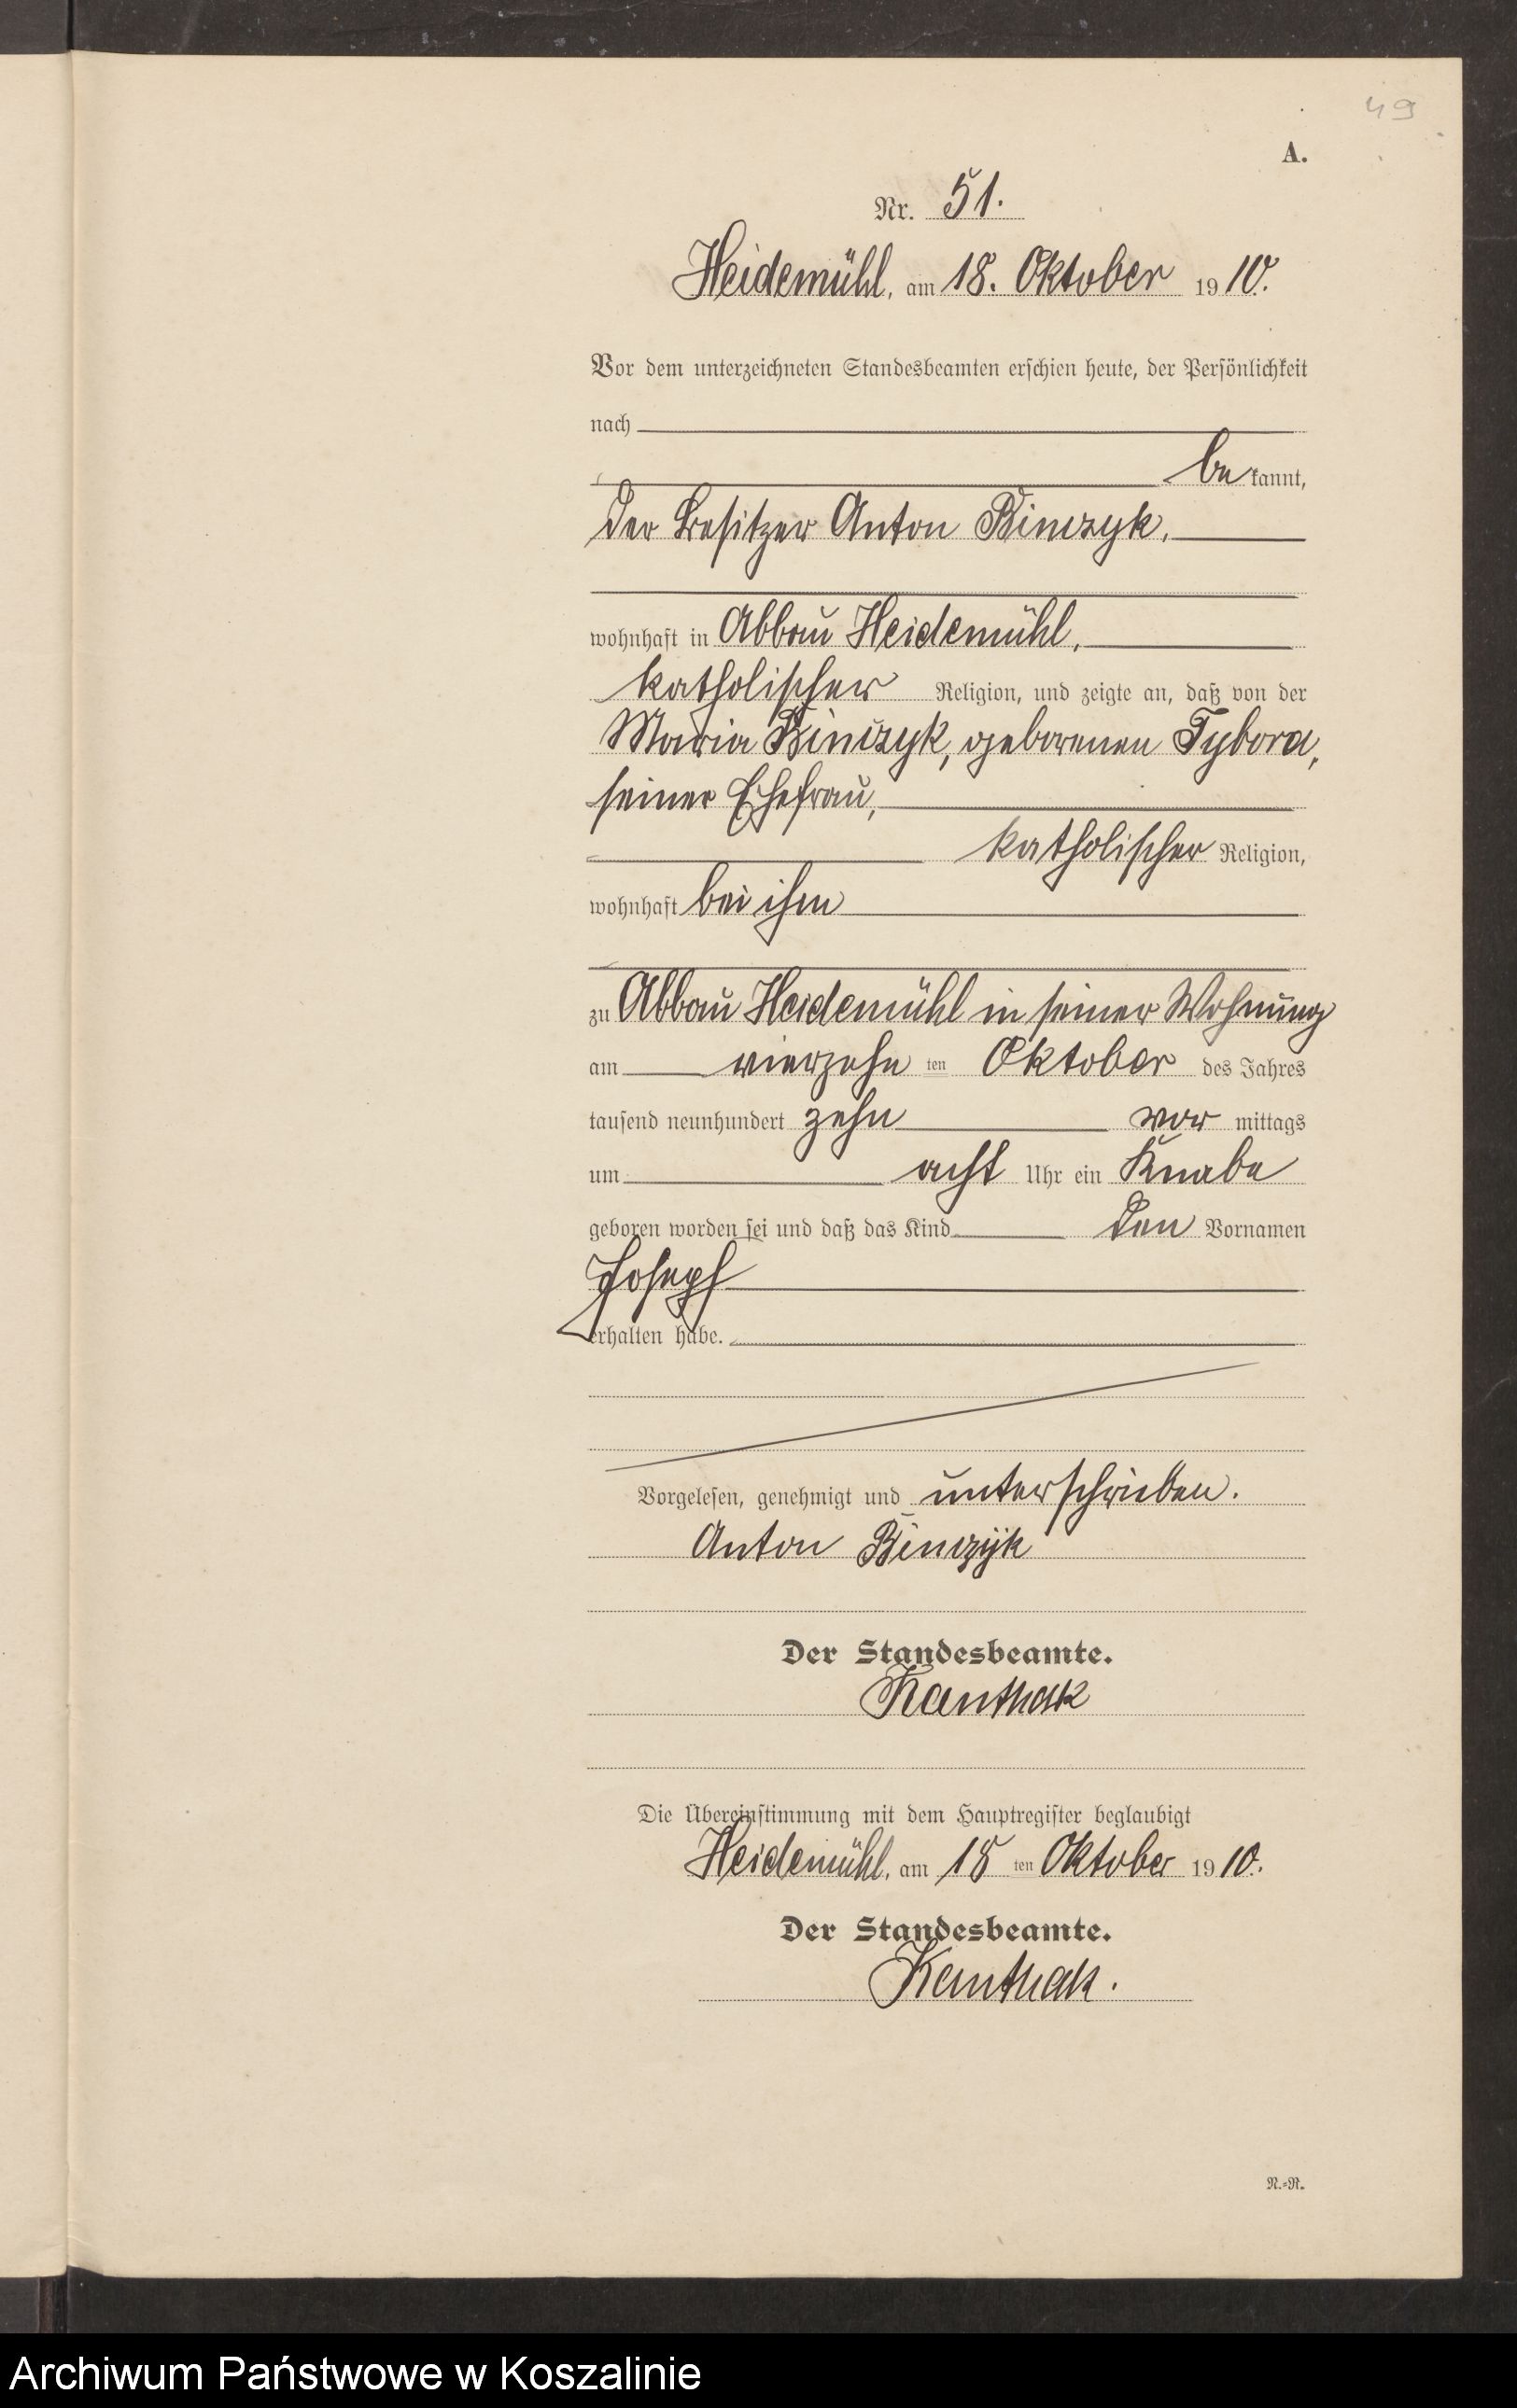 49
A.
Nr. 51.
Heidemühl, am 18. Oktober 1910.
Vor dem unterzeichneten Standesbeamten erschien heute, der Persönlichkeit
nach
bekannt,
der Besitzer Anton Binczyk,
wohnhaft in Abbau Heidemühl,
katholischer Religion, und zeigte an, daß von der
Maria Binczyk, geborenen Tybora,
seiner Ehefrau,
katholischer Religion,
wohnhaft bei ihm
zu Abbau Heidemühl in seiner Wohnung
am vierzehnten Oktober des Jahres
tausend neunhundert zehn vormittags
um acht Uhr ein Knabe
geboren worden sei und daß das Kind den Vornamen
Joseph
erhalten habe.
Vorgelesen, genehmigt und unterschrieben.
Anton Binczyk
Der Standesbeamte.
Kanthak
Die Übereinstimmung mit dem Hauptregister beglaubigt
Heidemühl, am 18ten Oktober 1910.
Der Standesbeamte.
Kanthak.
N.=R.
Archiwum Państwowe w Koszalinie